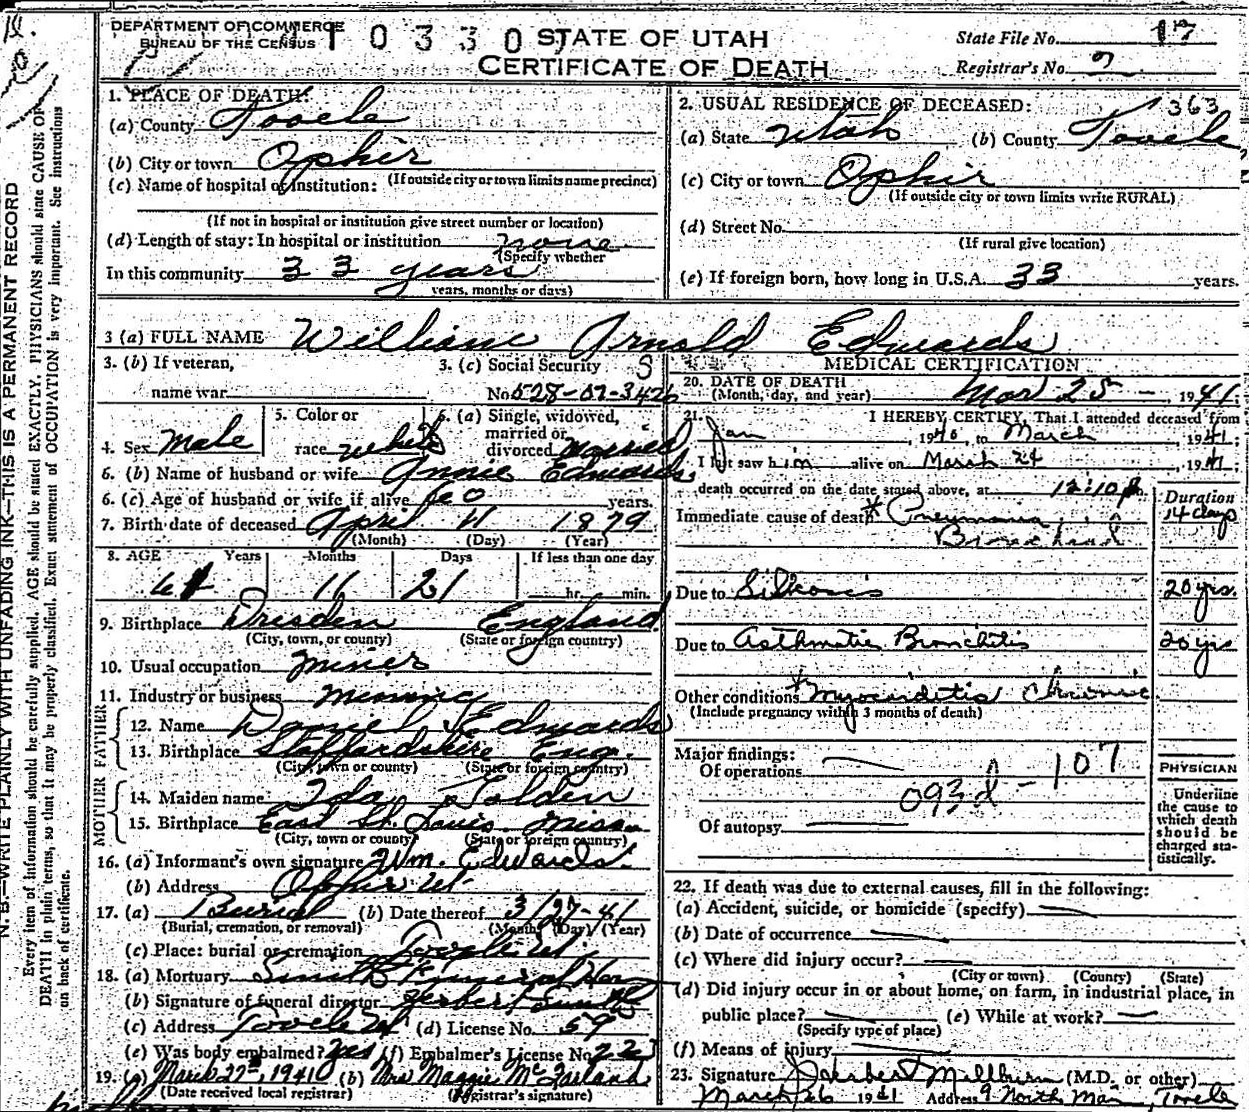 DEPARTMENT OF COMMERCE
BUREAU OF THE CENSUS
STATE OF UTAH
CERTIFICATE OF DEATH
State File No. 17
Registrar's No. 7
1. PLACE OF DEATH:
(a) County Tooele
(b) City or town Ophir
(If outside city or town limits name precinct)
(c) Name of hospital or institution:
(If not in hospital or institution give street number or location)
(d) Length of stay: In hospital or institution none
(Specify whether
In this community 33 years
years, months or days)
2. USUAL RESIDENCE OF DECEASED: 363
(a) State Utah (b) County Tooele
(c) City or town Ophir
(If outside city or town limits write RURAL)
(d) Street No.
(If rural give location)
(e) If foreign born, how long in U.S.A. 33 years.
3 (a) FULL NAME William Arnold Edwards
3. (b) If veteran,
name war
3. (c) Social Security
No. 528-07-3426
4. Sex Male
5. Color or
race white
6. (a) Single, widowed,
married or
divorced Married
6. (b) Name of husband or wife Annie Edwards
6. (c) Age of husband or wife if alive 60 years.
7. Birth date of deceased April 4 1879
(Month) (Day) (Year)
8. AGE Years Months Days If less than one day
61 11 21 hr. min.
9. Birthplace Dresden England
(City, town, or county) (State or foreign country)
10. Usual occupation miner
11. Industry or business mining
FATHER
12. Name Daniel Edwards
13. Birthplace Staffordshire Eng.
(City, town or county) (State or foreign country)
MOTHER
14. Maiden name Ida Tolden
15. Birthplace East St. Louis Miss
(City, town or county) (State or foreign country)
16. (a) Informant's own signature Wm. Edwards
(b) Address Ophir Ut
17. (a) Burial (b) Date thereof 3/27-41
(Burial, cremation, or removal) (Month) (Day) (Year)
(c) Place: burial or cremation Tooele Ut
18. (a) Mortuary Smith Funeral Home
(b) Signature of funeral director Herbert Smith
(c) Address Tooele Ut (d) License No. 59
(e) Was body embalmed? Yes (f) Embalmer's License No. 223
19. (a) March 27, 1941 (b) Mrs Maggie McFarland
(Date received local registrar) (Registrar's signature)
MEDICAL CERTIFICATION
20. DATE OF DEATH
(Month, day, and year) Mar 25 - 1941
21. I HEREBY CERTIFY, That I attended deceased from
Jan, 1940, to March 1941;
I last saw him alive on March 24 1941;
death occurred on the date stated above, at 12:10 p m.
Duration
Immediate cause of death * Pneumonia, 14 days
Bronchial
Due to Silicosis 20 yrs.
Due to Asthmatic Bronchitis 20 yrs
Other conditions * Myocarditis Chronic
(Include pregnancy within 3 months of death)
Major findings:
Of operations
093d - 107
Of autopsy
PHYSICIAN
Underline
the cause to
which death
should be
charged sta-
tistically.
22. If death was due to external causes, fill in the following:
(a) Accident, suicide, or homicide (specify)
(b) Date of occurrence
(c) Where did injury occur?
(City or town) (County) (State)
(d) Did injury occur in or about home, on farm, in industrial place, in
public place? (e) While at work?
(Specify type of place)
(f) Means of injury
23. Signature Herbert Millburn (M.D. or other)
March 26 1941 Address 9 North Main, Tooele
N. B.—WRITE PLAINLY WITH UNFADING INK—THIS IS A PERMANENT RECORD
Every item of information should be carefully supplied. AGE should be stated EXACTLY. PHYSICIANS should state CAUSE OF
DEATH in plain terms, so that it may be properly classified. Exact statement of OCCUPATION is very important. See instructions
on back of certificate.